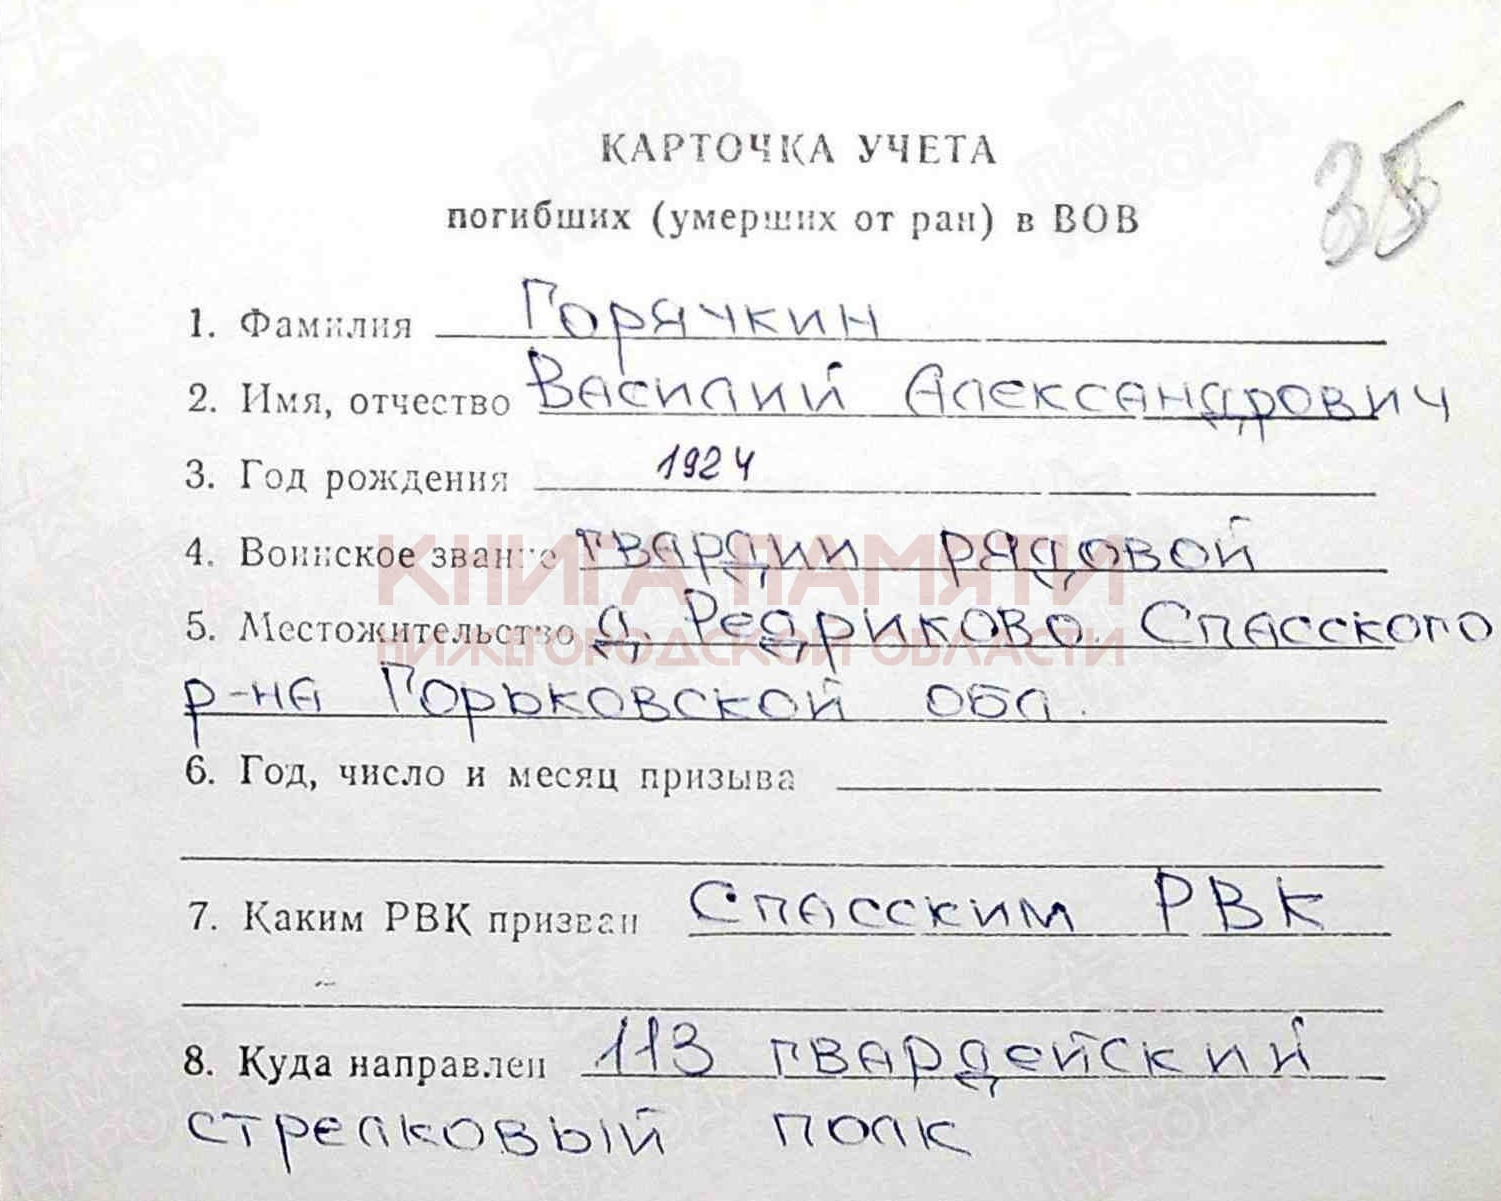 КАРТОЧКА УЧЕТА
погибших (умерших от ран) в ВОВ
35
1. Фамилия Горячкин
2. Имя, отчество Василий Александрович
3. Год рождения 1924
4. Воинское звание гвардии рядовой
КНИГА ПАМЯТИ
5. Местожительство д. Редриково Спасского
НИЖЕГОРОДСКОЙ ОБЛАСТИ
р-на Горьковской обл.
6. Год, число и месяц призыва
7. Каким РВК призван Спасским РВК
8. Куда направлен 113 гвардейский
стрелковый полк